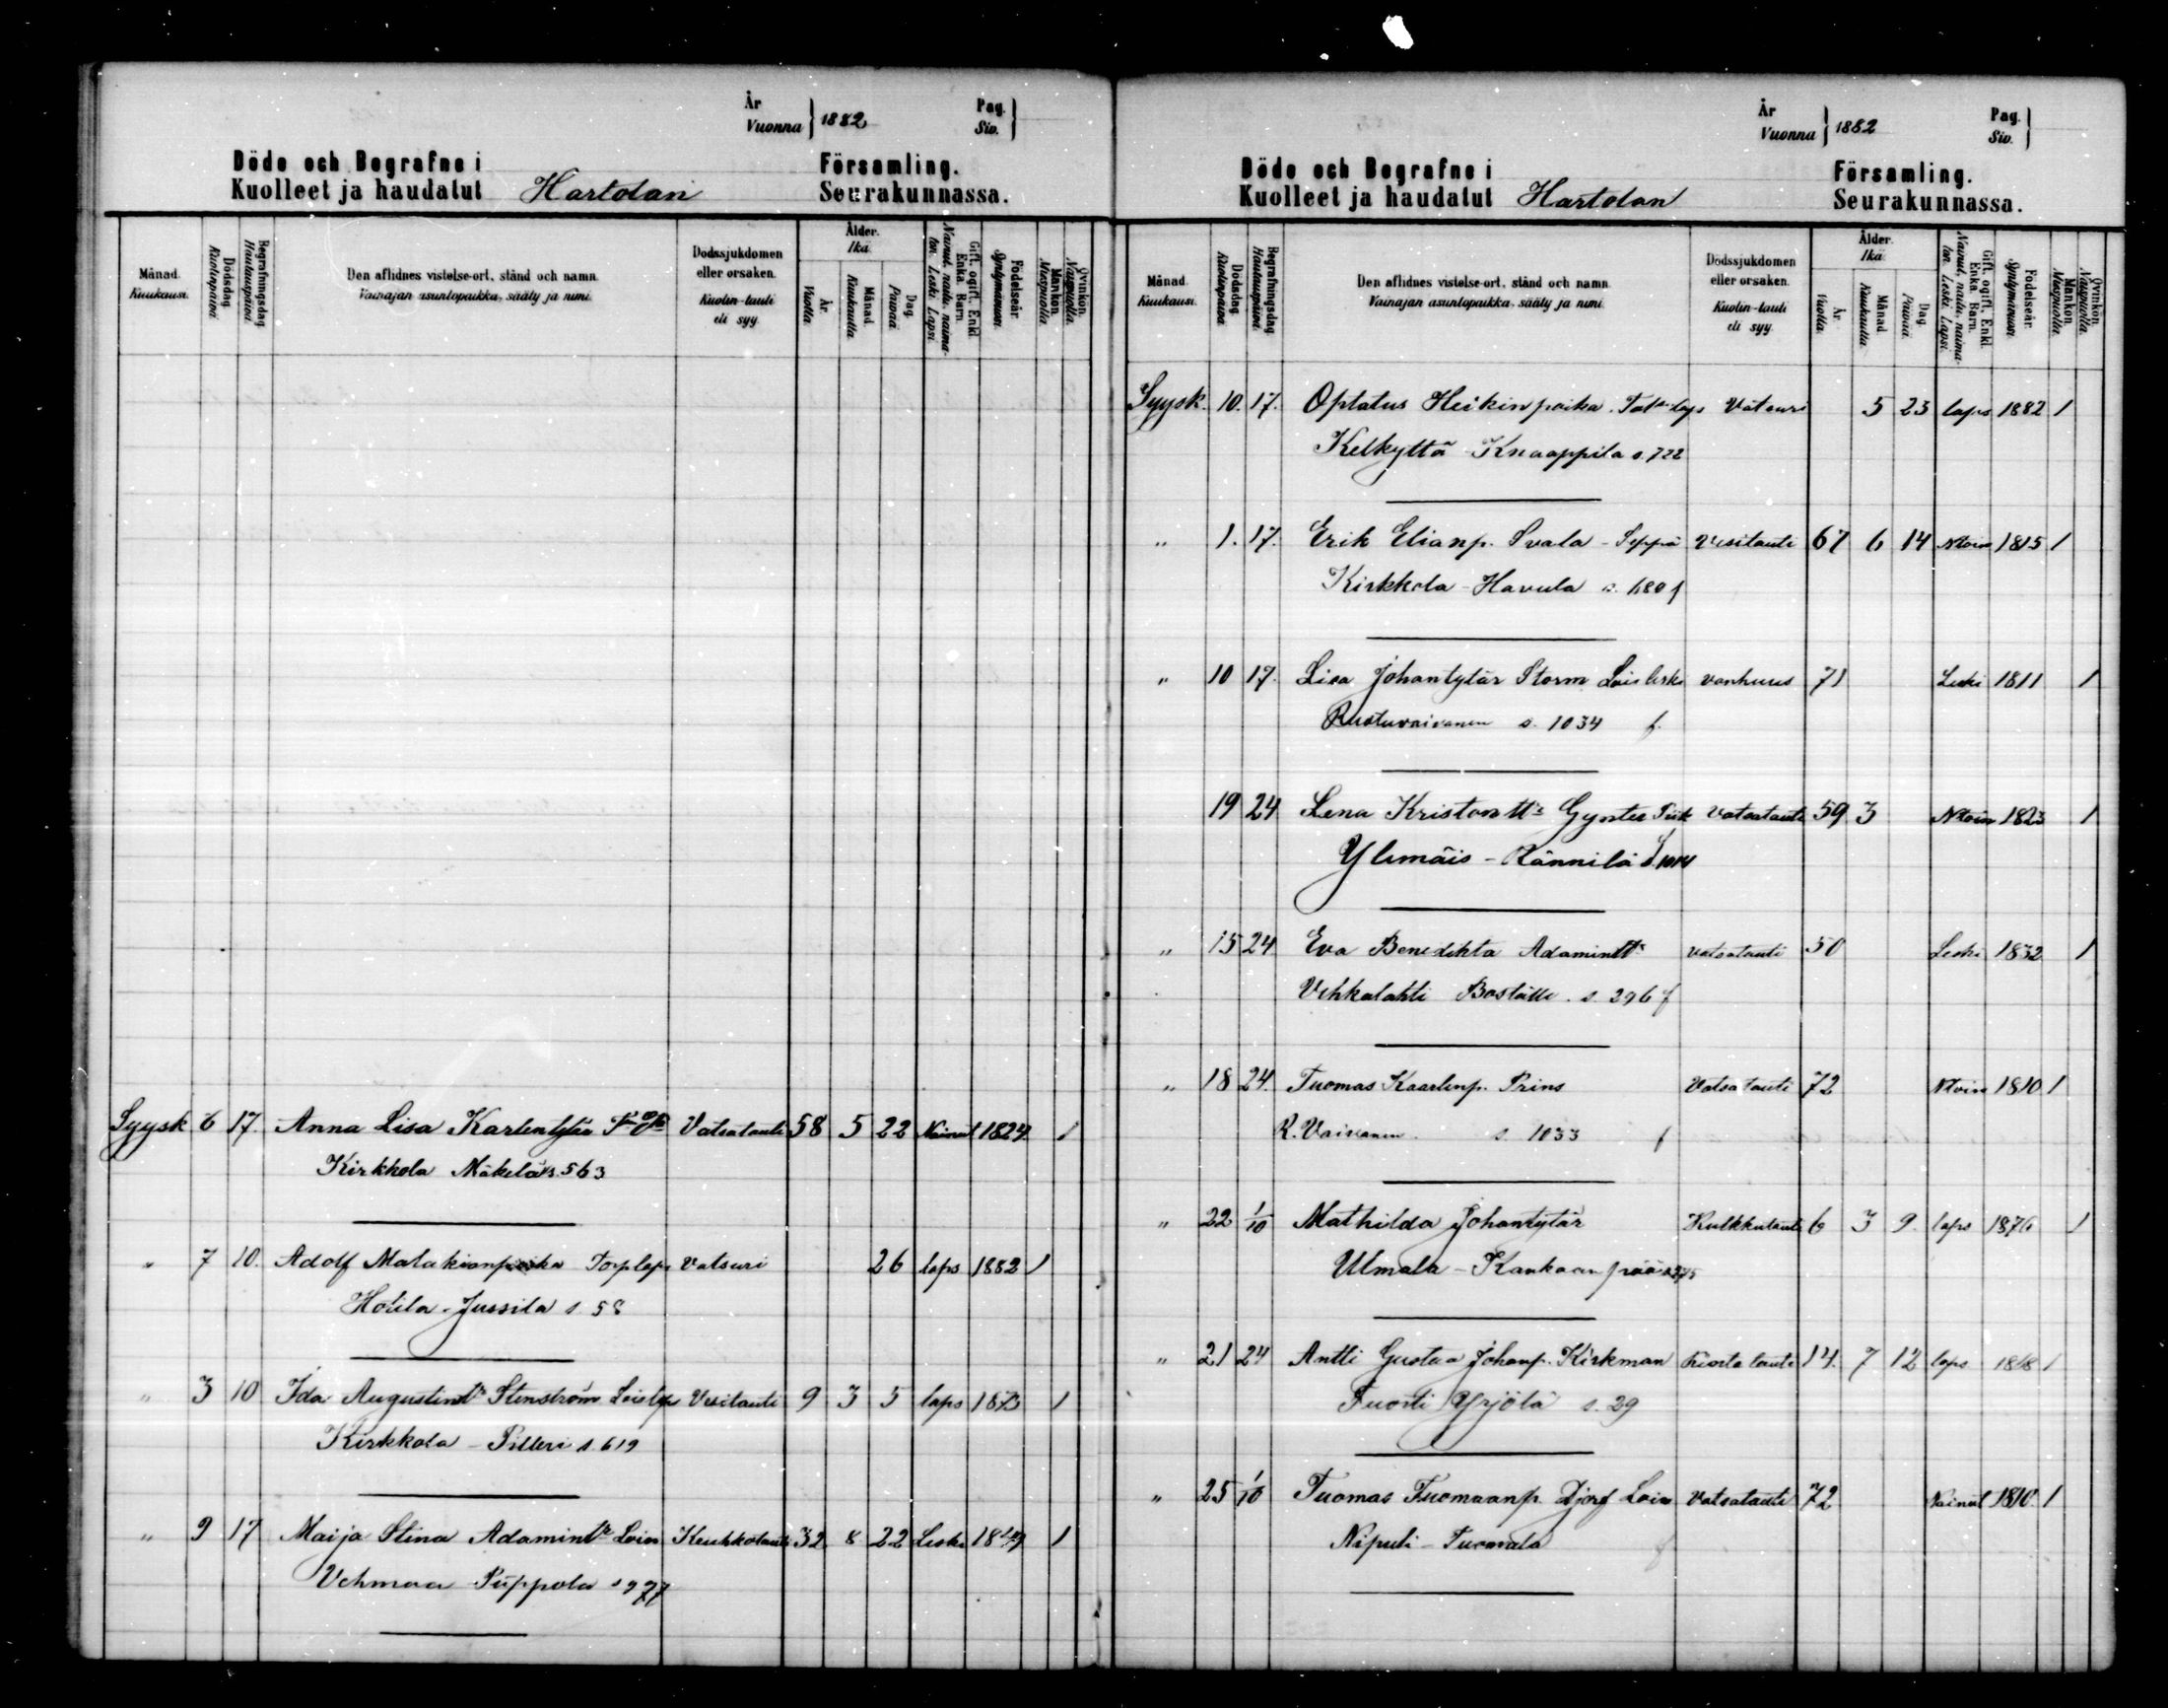 År
Vuonna } 1882
Pag.
Siv. }
Döde och Begrafne i Församling.
Kuolleet ja haudatut Hartolan Seurakunnassa.
Månad.
Kuukausi.
Dödsdag.
Kuolinpäivä.
Begrafningsdag.
Hautauspäivä.
Den aflidnes vistelse-ort, stånd och namn.
Vainajan asuntopaikka, sääty ja nimi.
Dödssjukdomen
eller orsaken.
Kuolin-tauti
eli syy.
Ålder.
Ikä.
År.
Vuotta.
Månad.
Kuukautta.
Dag.
Päivää.
Gift, ogift, Enkl.
Enka. Barn.
Nainut, naitu, naima-
ton. Leski. Lapsi.
Födelseår.
Syntymävuosi.
Mankön.
Miespuolta.
Qvinkön.
Naispuolta.
Syysk 6 17. Anna Lisa Karlentytär Vatsatauti 58 5 22 Nainut 1824 1
Kirkkola Mäkelä s. 563
" 7 10. Adolf Malakianpoika Torp laps Vatsuri 26 laps 1882 1
Hotila - Jussila s. 58
" 3 10 Ida Augustint:r Stenström Lois laps Vesitauti 9 3 5 laps 1873 1
Kirkkola - Pilleri s. 619
" 9 17 Maija Stina Adamint:r Lois Keuhkotauti 32 8 22 Leski 1849 1
Vehmaa Piippola s 977
År
Vuonna } 1882
Pag.
Siv. }
Döde och Begrafne i Församling.
Kuolleet ja haudatut Hartolan Seurakunnassa.
Månad.
Kuukausi.
Dödsdag.
Kuolinpäivä.
Begrafningsdag.
Hautauspäivä.
Den aflidnes vistelse-ort, stånd och namn.
Vainajan asuntopaikka, sääty ja nimi.
Dödssjukdomen
eller orsaken.
Kuolin-tauti
eli syy.
Ålder.
Ikä.
År.
Vuotta.
Månad.
Kuukautta.
Dag.
Päivää.
Gift, ogift, Enkl.
Enka. Barn.
Nainut, naitu, naima-
ton. Leski. Lapsi.
Födelseår.
Syntymävuosi.
Mankön.
Miespuolta.
Qvinkön.
Naispuolta.
Syysk. 10. 17. Optatus Heikinpoika Tal. laps Vatsuri 5 23 laps 1882 1
Kelkyttä Knaappila s. 722
" 1. 17. Erik Elianp. Svala - Seppä Vesitauti 67 6 14 Ntoin 1815 1
Kirkkola - Havula s. 680 f
" 10 17. Lisa Johantytär Storm Lois leski vanhuus 71 Leski 1811 1
Rustuvaivanen s. 1034 f.
19 24 Lena Kristontt:r Gynter Piik Vatsatauti 59 3 Ntoin 1823 1
Ylemäis - Rännilä s. 1014
" 15 24 Eva Benedikta Adamintt:r vatsatauti 50 Leski 1832 1
Vehkalahti Boställe s. 296 f
" 18 24. Tuomas Kaarlenp. Prins Vatsatauti 72 Ntoin 1810 1
R. Vaivanen s. 1033 f
" 22 1/10 Mathilda Johantytär Kulkkutauti 6 3 9. laps 1876 1
Ulmala - Kankaanpää s 375
" 21 24 Antti Gustaa Johanp. Kirkman Rinta tauti 14. 7 12 laps 1868 1
Fuosti Yrjölä s. 29
" 25 1/10 Tuomas Tuomaanp. Djorf Lois Vatsatauti 72 Nainut 1810 1
Nipuli - Tuomala f